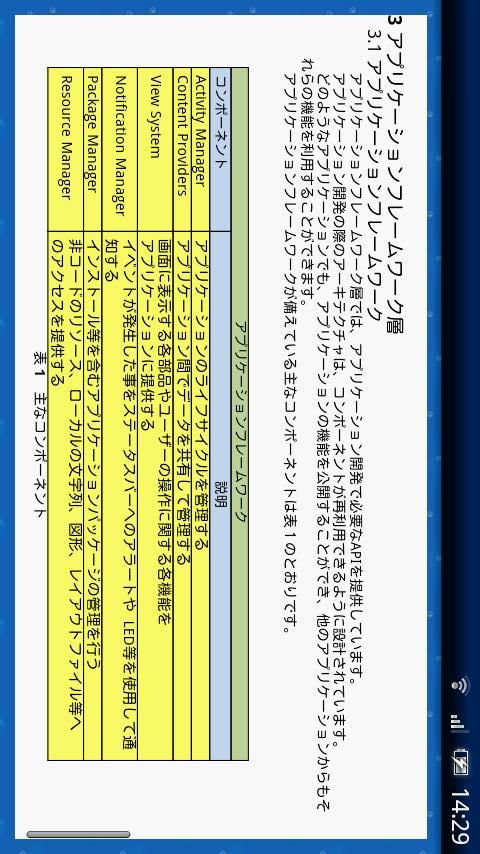 14:29
3 アプリケーションフレームワーク層
3.1 アプリケーションフレームワーク
アプリケーションフレームワーク層では、アプリケーション開発で必要なAPIを提供しています。
アプリケーション開発の際のアーキテクチャは、コンポーネントが再利用できるように設計されています。
どのようなアプリケーションでも、アプリケーションの機能を公開することができ、他のアプリケーションからもそ
れらの機能を利用することができます。
アプリケーションフレームワークが備えている主なコンポーネントは表１のとおりです。
アプリケーションフレームワーク
コンポーネント 説明
Activity Manager アプリケーションのライフサイクルを管理する
Content Providers アプリケーション間でデータを共有して管理する
View System 画面に表示する各部品やユーザーの操作に関する各機能を
アプリケーションに提供する
Notification Manager イベントが発生した事をステータスバーへのアラートや　LED等を使用して通
知する
Package Manager インストール等を含むアプリケーションパッケージの管理を行う
Resource Manager 非コードのリソース、ローカルの文字列、図形、レイアウトファイル等へ
のアクセスを提供する
表１　主なコンポーネント